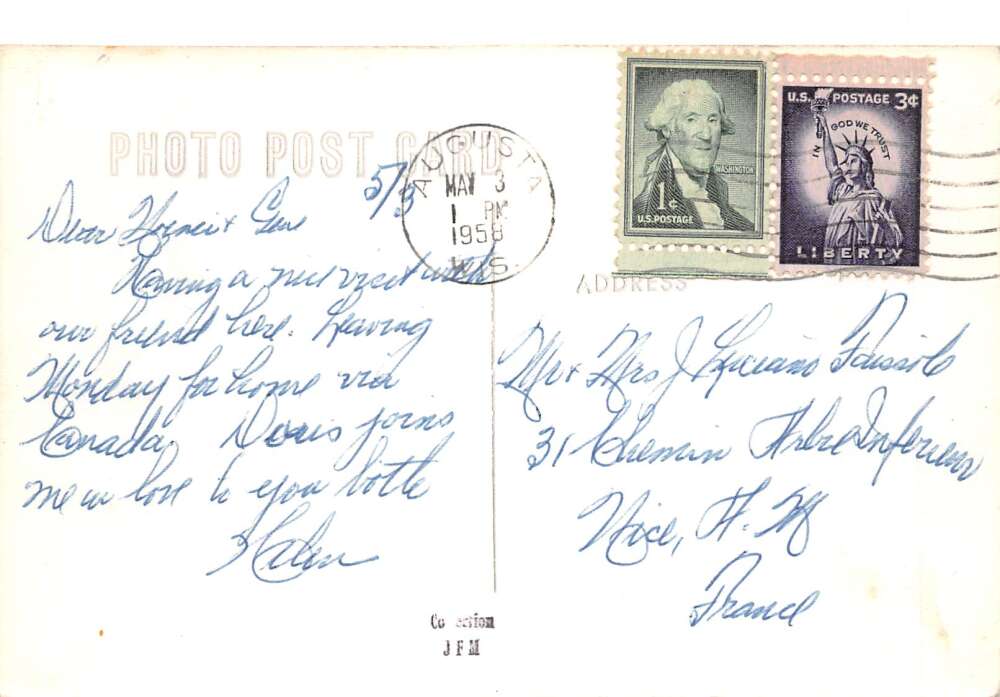 PHOTO POST CARD
5/3
Dear &
Having a nice visit with
our friend here. Leaving
Monday for home via
Canada, Doris joins
me in love to you both
Helen
AUGUSTA
MAY 3
1 PM
1958
WIS.
WASHINGTON
1¢
U.S. POSTAGE
U.S. POSTAGE 3¢
IN GOD WE TRUST
LIBERTY
ADDRESS
Mr & Mrs J Luciano
31 Chemin Arbre Inferieur
Nice, A. M
France
Co ection
J F M